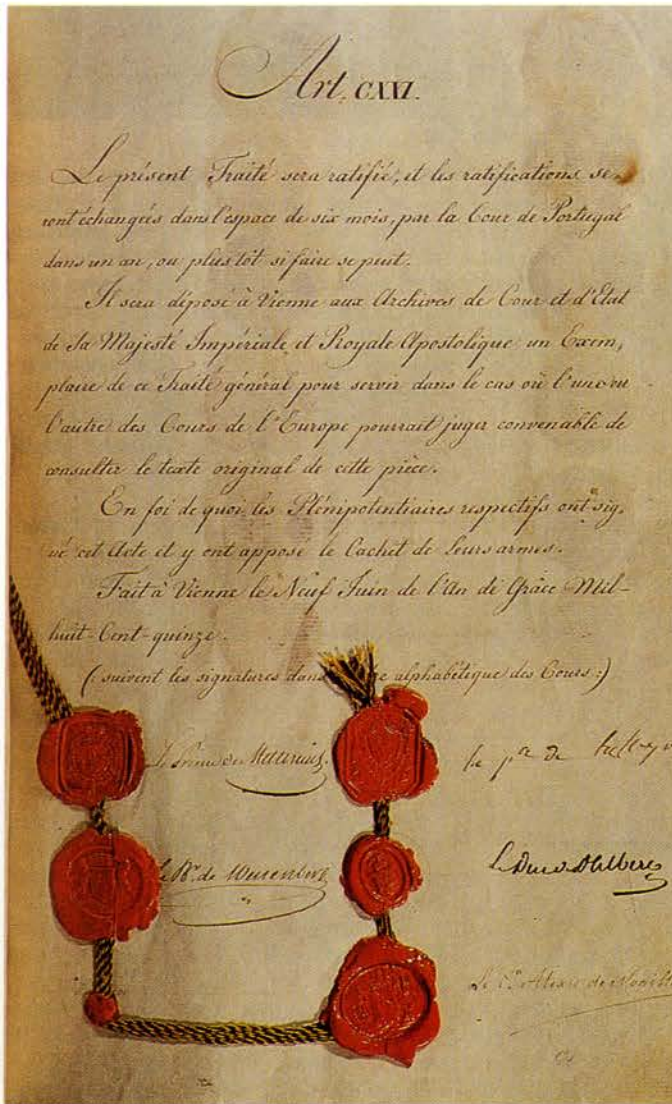 Art. CXXI.
Le présent Traité sera ratifié, et les ratifications se-
ront échangées dans l'espace de six mois, par la Cour de Portugal
dans un an, ou plus tôt si faire se peut.
Il sera déposé à Vienne aux Archives de Cour et d'Etat
de Sa Majesté Impériale et Royale Apostolique un Exem,
plaire de ce Traité général pour servir dans le cas où l'une ou
l'autre des Cours de l'Europe pourrait juger convenable de
consulter le texte original de cette pièce.
En foi de quoi les Plénipotentiaires respectifs ont sig,
né cet Acte et y ont apposé le Cachet de leurs armes.
Fait à Vienne le Neuf Juin de l'An de Grâce Mil-
huit-Cent-quinze.
(: suivent les signatures dans alphabétique des Cours :)
Le Prince de Metternich. le pce de
Le Bn. de Wessenberg Le Duc de Dalberg
Le Cte Alexis de